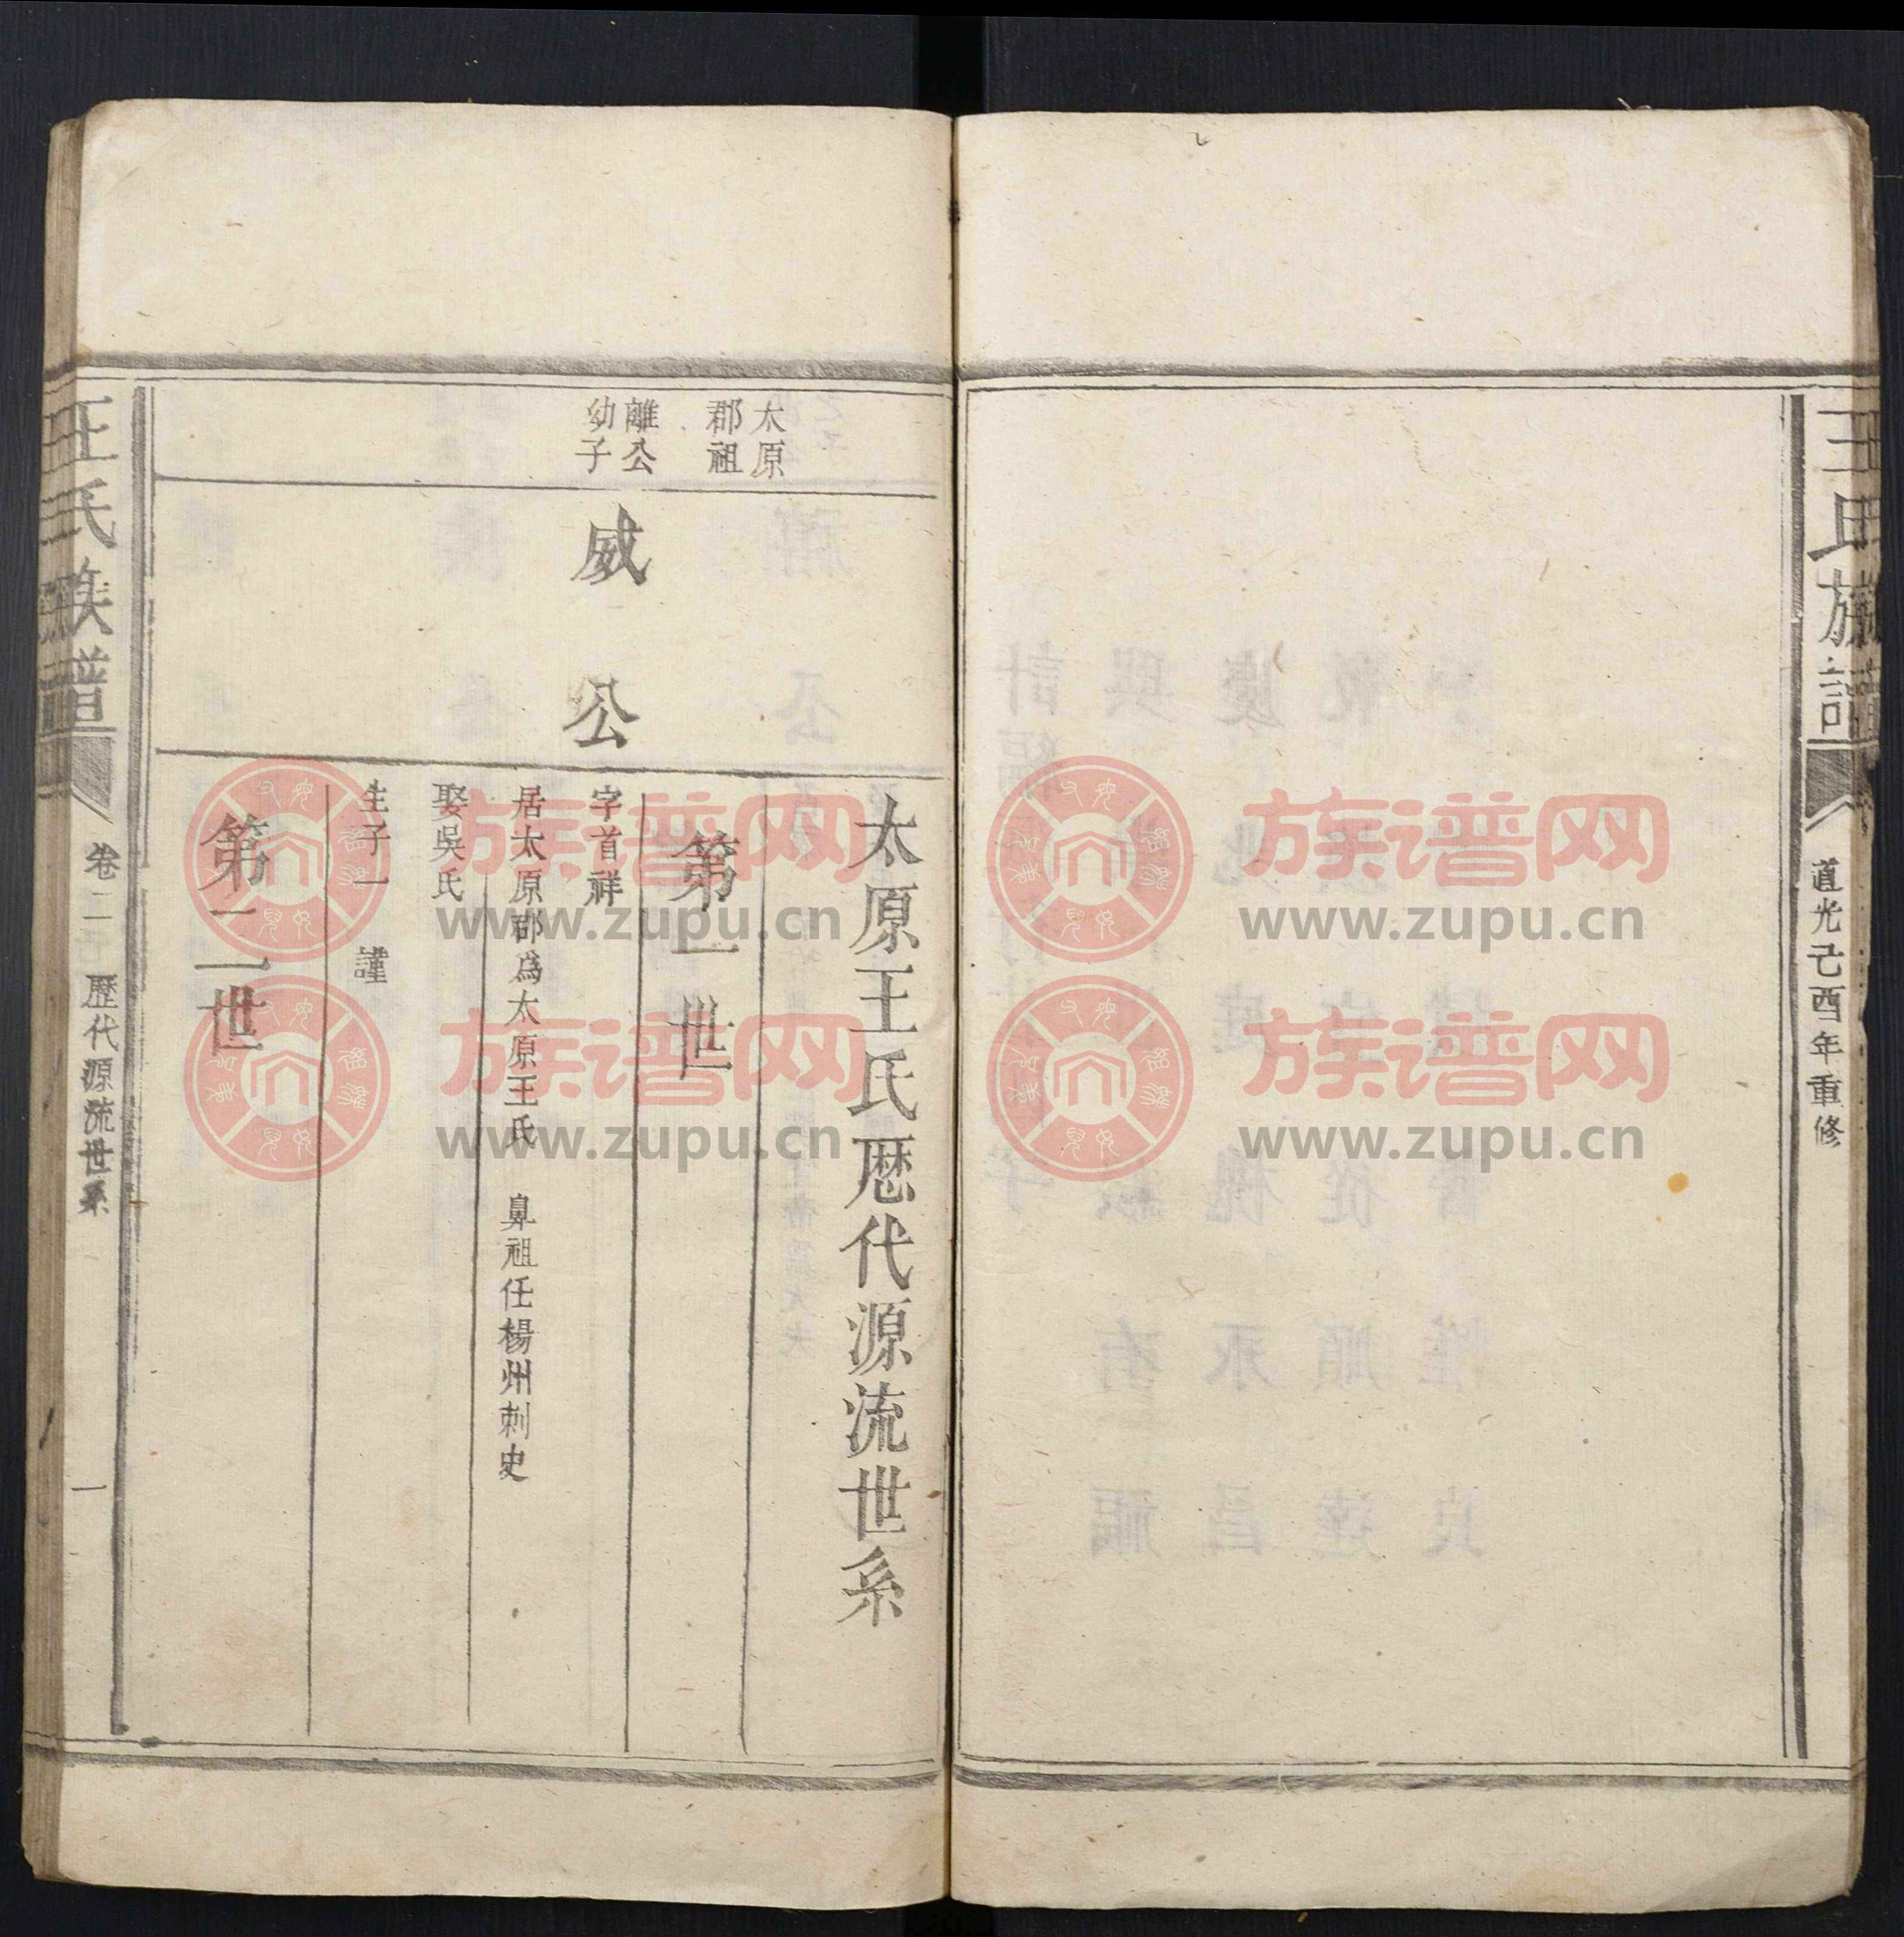 王氏族譜
道光己酉年重修
太原王氏歴代源流世系
太原
郡祖
離公
幼子
威公
第一世
字首祥
居太原郡為太原王氏 鼻祖任楊州刺史
娶吳氏
生子一 謹
第二世
王氏族譜
卷二 歷代源流世系 一
族谱网
www.zupu.cn
族谱网
www.zupu.cn
族谱网
www.zupu.cn
族谱网
www.zupu.cn